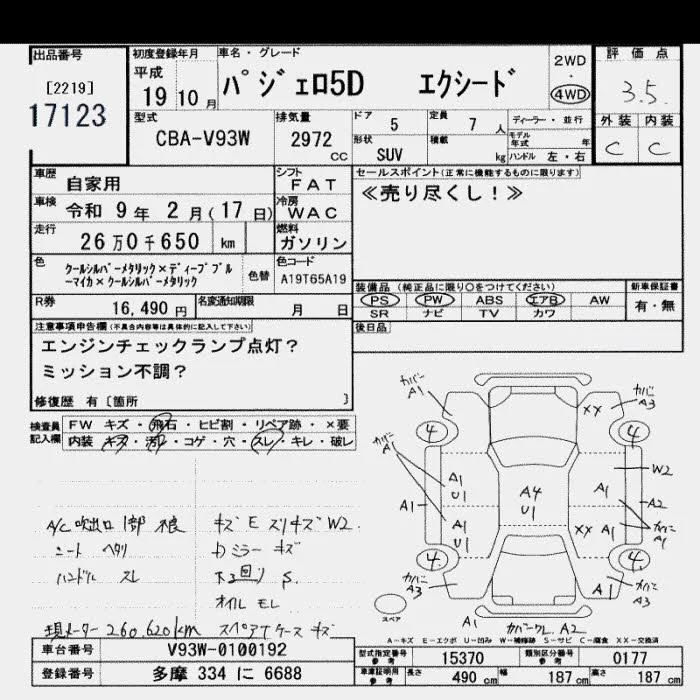 出品番号
[2219]
17123
初度登録年月
平成
19 10 月
車名・グレード
パジェロ5D エクシード
2WD
・
4WD
評価点
3.5.
型式
CBA-V93W
排気量
2972
CC
ドア 5
定員 7 人
形状 SUV
積載 kg
ディーラー・並行
モデル年式 年
ハンドル 左・右
外装 内装
C C
車歴 自家用
シフト FAT
車検 令和 9年 2月(17日)
冷房 WAC
走行 26万0千650 km
燃料 ガソリン
色 クールシルバーメタリック×ディープブル
ーマイカ×クールシルバーメタリック
色替
色コード A19T65A19
R券 16,490 円
名変通知期限 月 日
セールスポイント(正常に機能するものに限ります)
≪売り尽くし!≫
装備品(純正品に限り○をつけてください)
PS PW ABS エアB AW
SR ナビ TV カワ
新車保証書
有・無
後日品
注意事項申告欄(不具合内容等は具体的に記入して下さい)
エンジンチェックランプ点灯?
ミッション不調?
修復歴 有〔箇所 〕
検査員
記入欄
FW キズ・飛石・ヒビ割・リペア跡・×要
内装 キズ・汚れ・コゲ・穴・スレ・キレ・破レ
A/C 吹出口 1部 不良
シート ヘタリ
ハンドル スレ
キズ E スリキズ W2
カミラー キズ
下回り S.
オイル モレ
現メーター 260.620km スペアTケース キズ
カバー A1
カバー A3
XX
4
4
カバー
A1
A1
U1
A1
U1
A4
U1
A1
XX
W2
A2
カバー
A1
4
4
カバー
A3
A1
カバー
A3
スペア
A1
カバーワレ A2
A-キズ E-エクボ U-凹み W-補修跡 S-サビ C-腐食 XX-交換済
車台番号 V93W-0100192
登録番号 多摩 334 に 6688
型式指定番号
参考
15370
類別区分番号
参考
0177
車庫証明用
参考
長さ 490 cm
幅 187 cm
高さ 187 cm